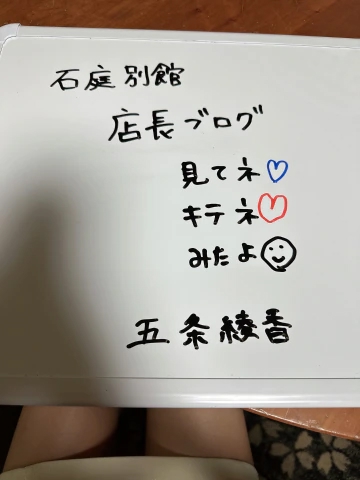 石庭別館
店長ブログ
見てネ♡
キテネ♡
みたよ☺
五条綾香